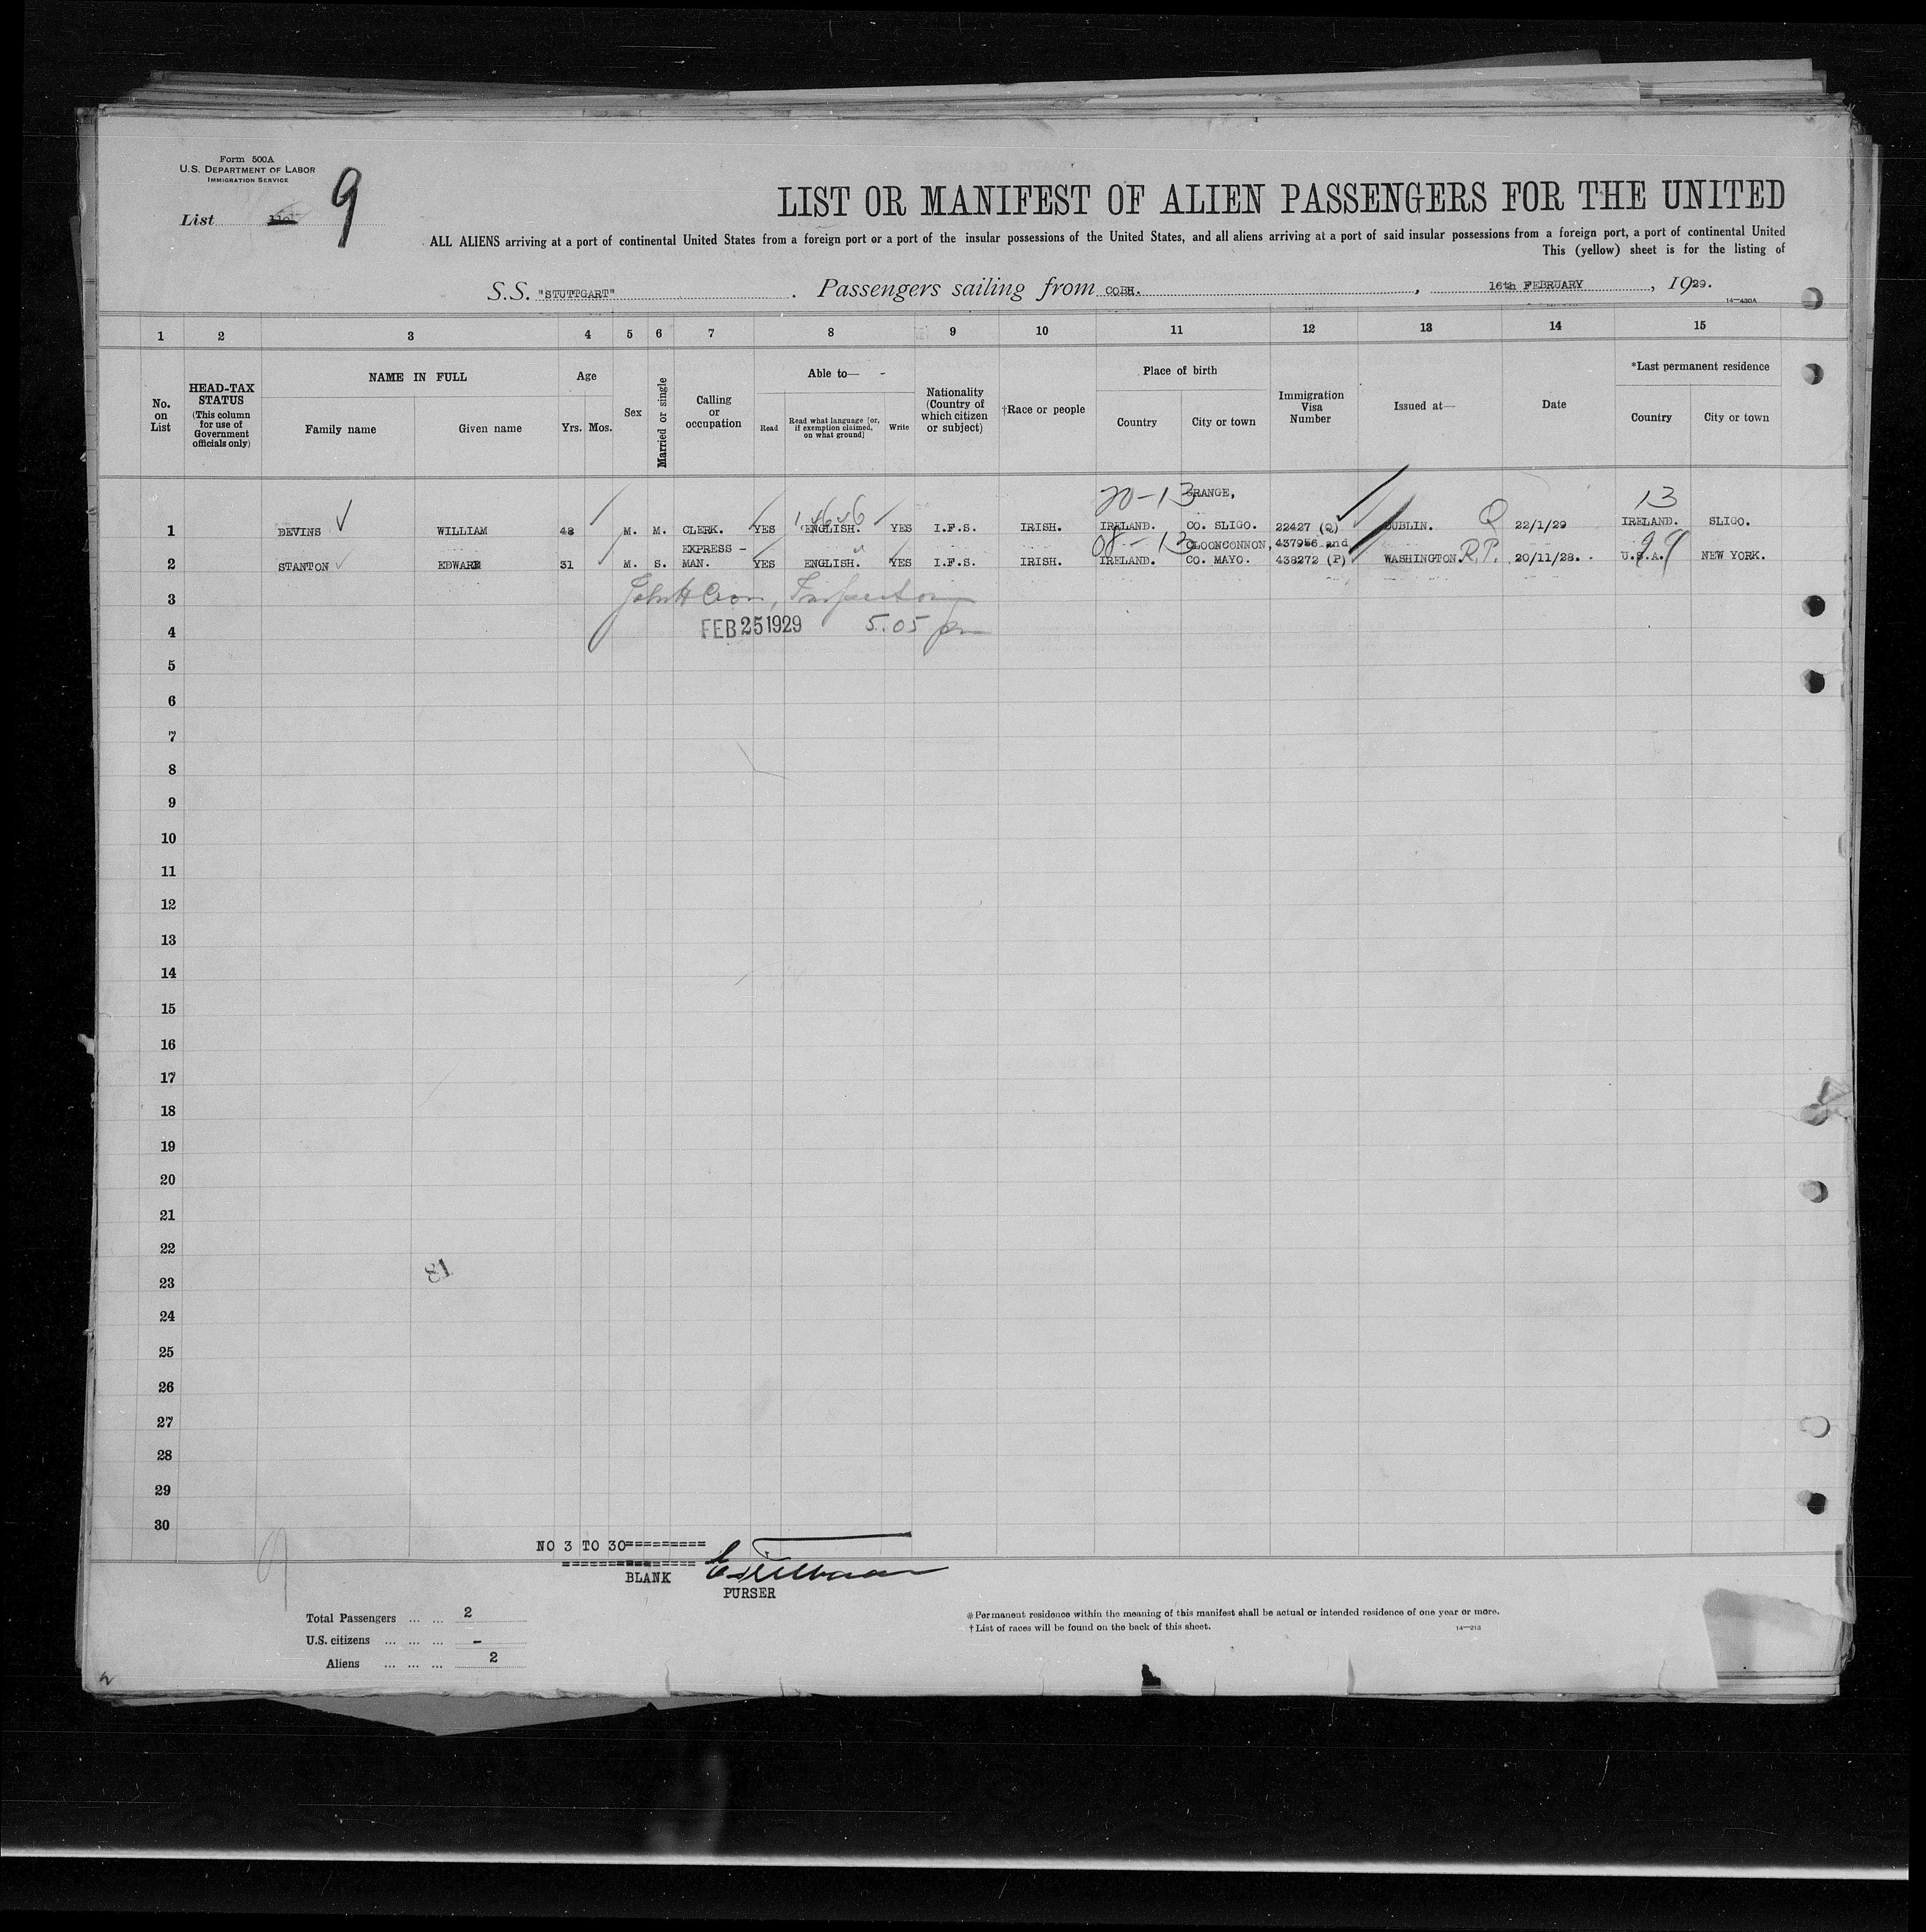 Form 500A
U.S. DEPARTMENT OF LABOR
IMMIGRATION SERVICE
List 9
LIST OR MANIFEST OF ALIEN PASSENGERS FOR THE UNITED
ALL ALIENS arriving at a port of continental United States from a foreign port or a port of the insular possessions of the United States, and all aliens arriving at a port of said insular possessions from a foreign port, a port of continental United
This (yellow) sheet is for the listing of
S.S. "STUTTGART". Passengers sailing from COBH. , 16th FEBRUARY , 1929.
14—430A
1 2 3 4 5 6 7 8 9 10 11 12 13 14 15
No. on List
HEAD-TAX STATUS (This column for use of Government officials only)
NAME IN FULL
Family name Given name
Age
Yrs. Mos.
Sex
Married or single
Calling or occupation
Able to—
Read
Read what language [or, if exemption claimed, on what ground]
Write
Nationality (Country of which citizen or subject)
†Race or people
Place of birth
Country City or town
Immigration Visa Number
Issued at—
Date
*Last permanent residence
Country City or town
20-13 GRANGE, 13
1 BEVINS WILLIAM 48 M. M. CLERK. YES ENGLISH. YES I.F.S. IRISH. IRELAND. CO. SLIGO. 22427 (Q) DUBLIN. Q 22/1/29 IRELAND. SLIGO.
EXPRESS - 08-13 CLOONCONNON, 437956 and 99
2 STANTON EDWARD 31 M. S. MAN. YES ENGLISH. YES I.F.S. IRISH. IRELAND. CO. MAYO. 438272 (P) WASHINGTON. R.P. 20/11/28. U.S.A. NEW YORK.
3
4 FEB 25 1929 5.05 pm
5
6
7
8
9
10
11
12
13
14
15
16
17
18
19
20
21
22
81
23
24
25
26
27
28
29
30
NO 3 TO 30=========
==============
BLANK
PURSER
9
Total Passengers ... ... 2
U.S. citizens ... ... ... -
Aliens ... ... ... 2
*Permanent residence within the meaning of this manifest shall be actual or intended residence of one year or more.
†List of races will be found on the back of this sheet.
14—213